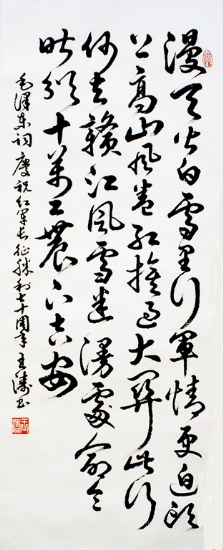 漫天皆白雪里行軍情更迫頭
上高山风卷红旗过大関此行
何去贛江風雪迷漫處命令
昨颁十萬工農下吉安
毛澤东词庆祝红军长征胜利七十周年王涛书